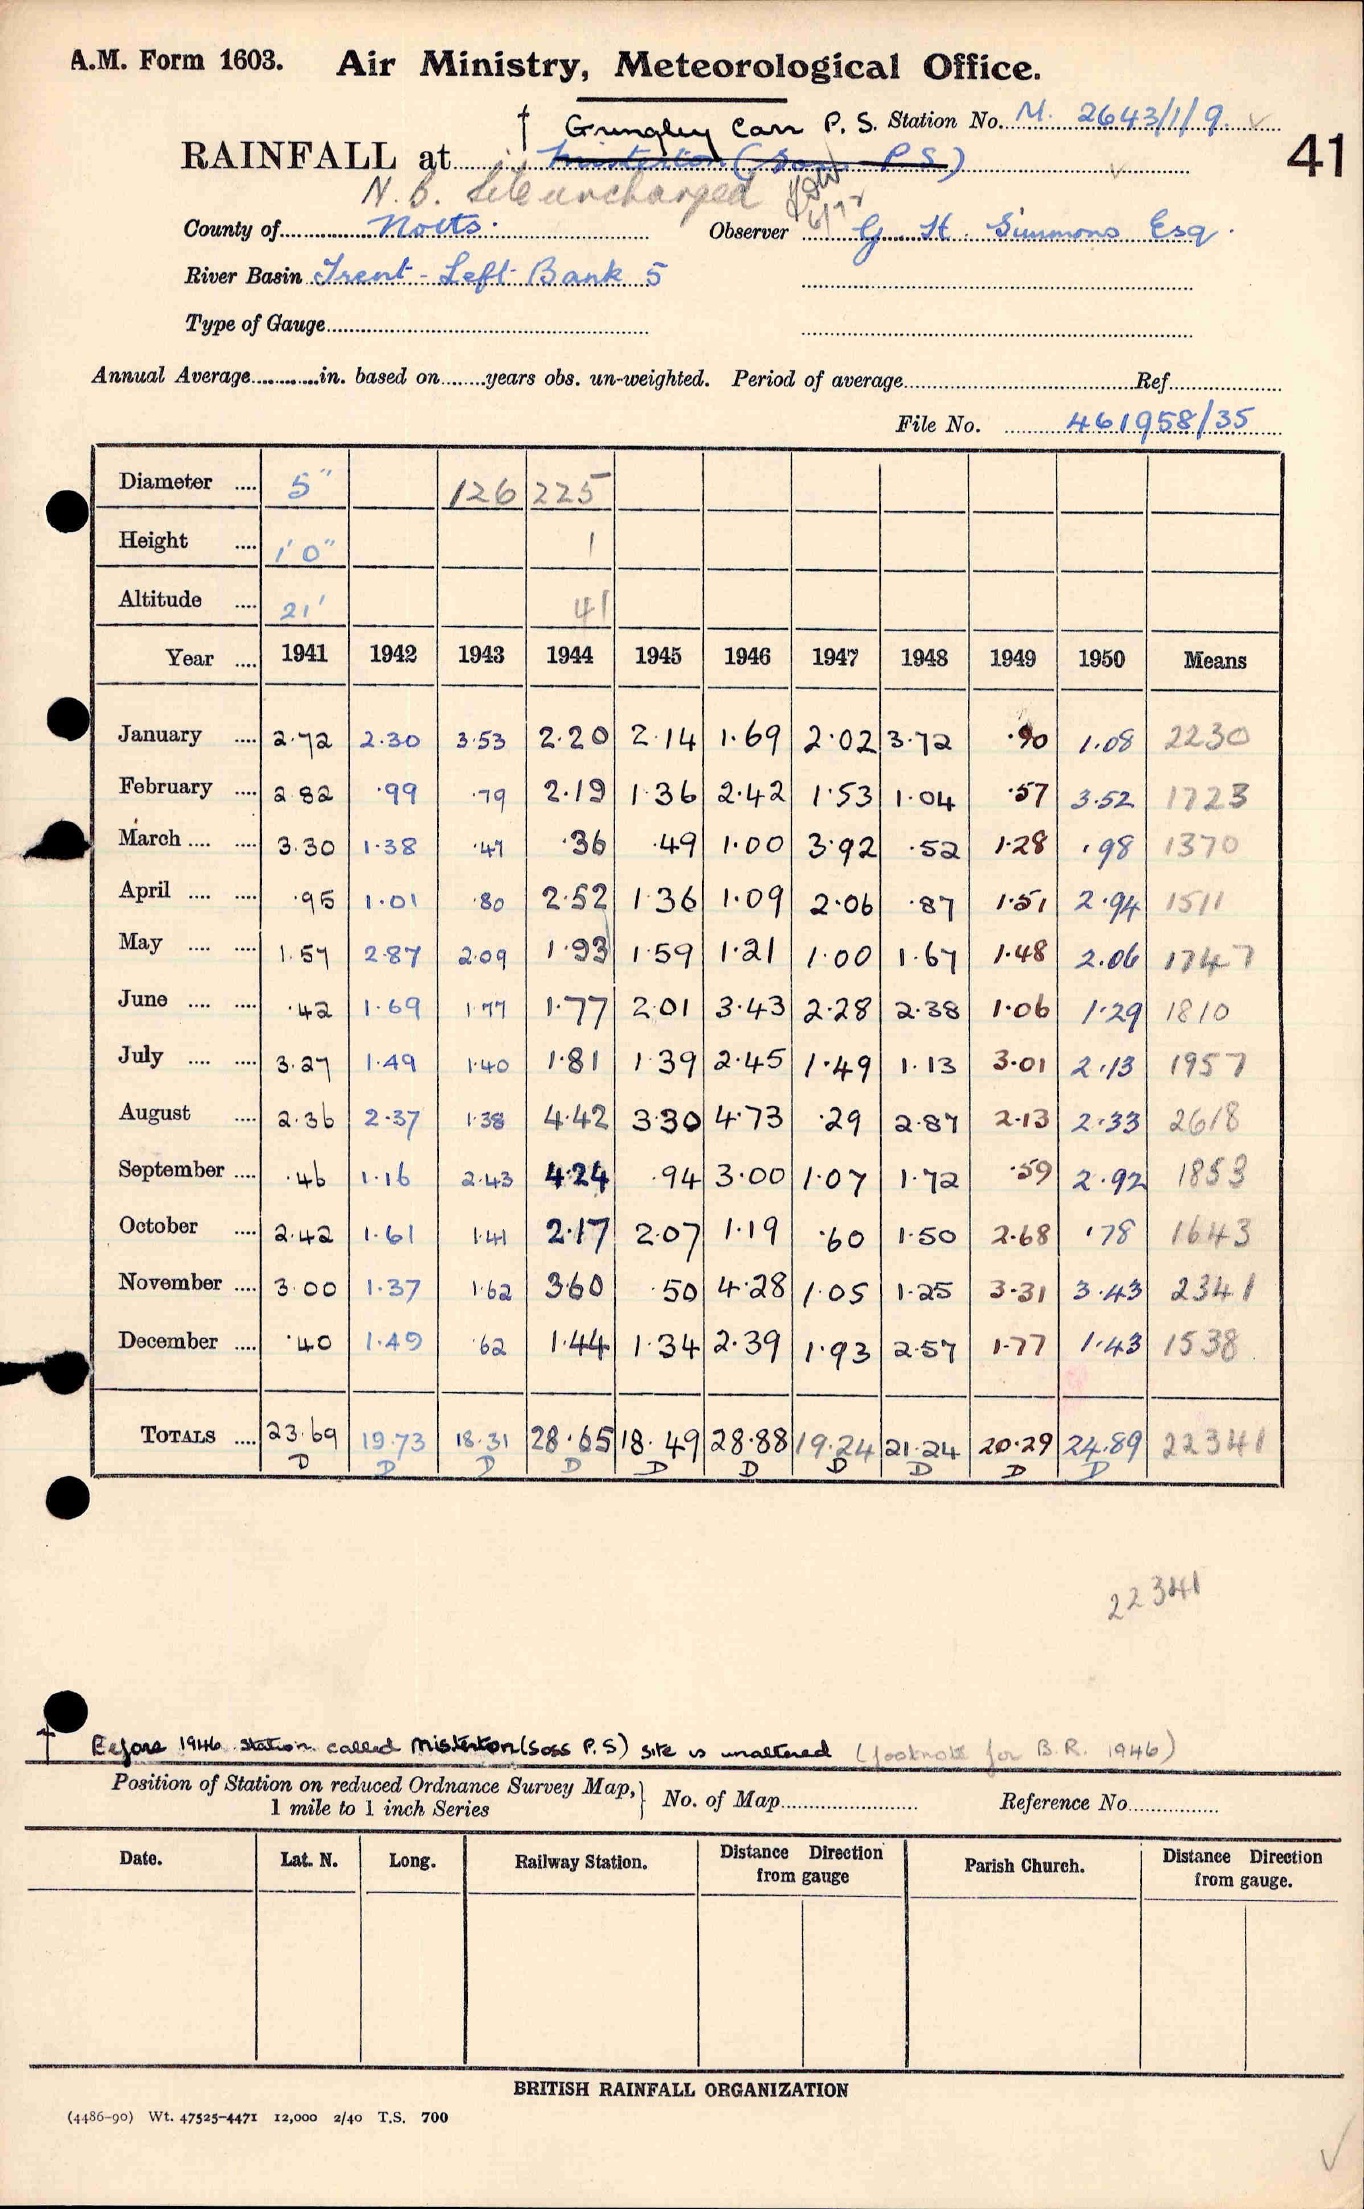 A.M. Form 1603. Air Ministry, Meteorological Office.
† Gringley Carr P. S. Station No. M. 2643/1/9. ✓
41
RAINFALL at Misterton (Soss P.S)
N.B. Site unchanged
County of Notts. Observer G. H. Simmons Esq.
River Basin Trent - Left Bank 5
Type of Gauge
Annual Average in. based on years obs. un-weighted. Period of average Ref
File No. 461958/35
Diameter 5" 126 225
Height 1'0" 1
Altitude 21' 41
Year 1941 1942 1943 1944 1945 1946 1947 1948 1949 1950 Means
January 2.72 2.30 3.53 2.20 2.14 1.69 2.02 3.72 .90 1.08 2230
February 2.82 .99 .79 2.19 1.36 2.42 1.53 1.04 .57 3.52 1723
March 3.30 1.38 .47 .36 .49 1.00 3.92 .52 1.28 .98 1370
April .95 1.01 .80 2.52 1.36 1.09 2.06 .87 1.51 2.94 1511
May 1.57 2.87 2.09 1.93 1.59 1.21 1.00 1.67 1.48 2.06 1747
June .42 1.69 1.77 1.77 2.01 3.43 2.28 2.38 1.06 1.29 1810
July 3.27 1.49 1.40 1.81 1.39 2.45 1.49 1.13 3.01 2.13 1957
August 2.36 2.37 1.38 4.42 3.30 4.73 .29 2.87 2.13 2.33 2618
September .46 1.16 2.43 4.24 .94 3.00 1.07 1.72 .59 2.92 1853
October 2.42 1.61 1.41 2.17 2.07 1.19 .60 1.50 2.68 .78 1643
November 3.00 1.37 1.62 3.60 .50 4.28 1.05 1.25 3.31 3.43 2341
December .40 1.49 .62 1.44 1.34 2.39 1.93 2.57 1.77 1.43 1538
TOTALS 23.69 19.73 18.31 28.65 18.49 28.88 19.24 21.24 20.29 24.89 22341
D D D D D D D D D D
22341
† Before 1946 station called Misterton (Soss P.S) site is unaltered (footnote for B.R. 1946)
Position of Station on reduced Ordnance Survey Map, 1 mile to 1 inch Series } No. of Map Reference No.
Date. Lat. N. Long. Railway Station. Distance Direction from gauge Parish Church. Distance Direction from gauge.
BRITISH RAINFALL ORGANIZATION
(4486-90) Wt. 47525-4471 12,000 2/40 T.S. 700